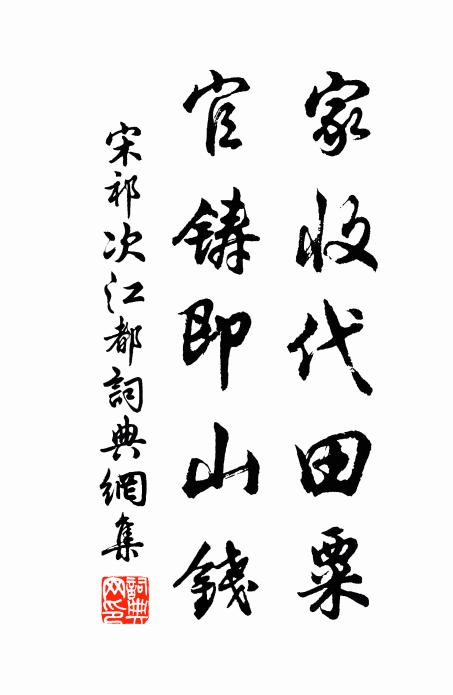 家收代田粟
官铸即山錢
宋祁次江都詞典網集
詞典網印